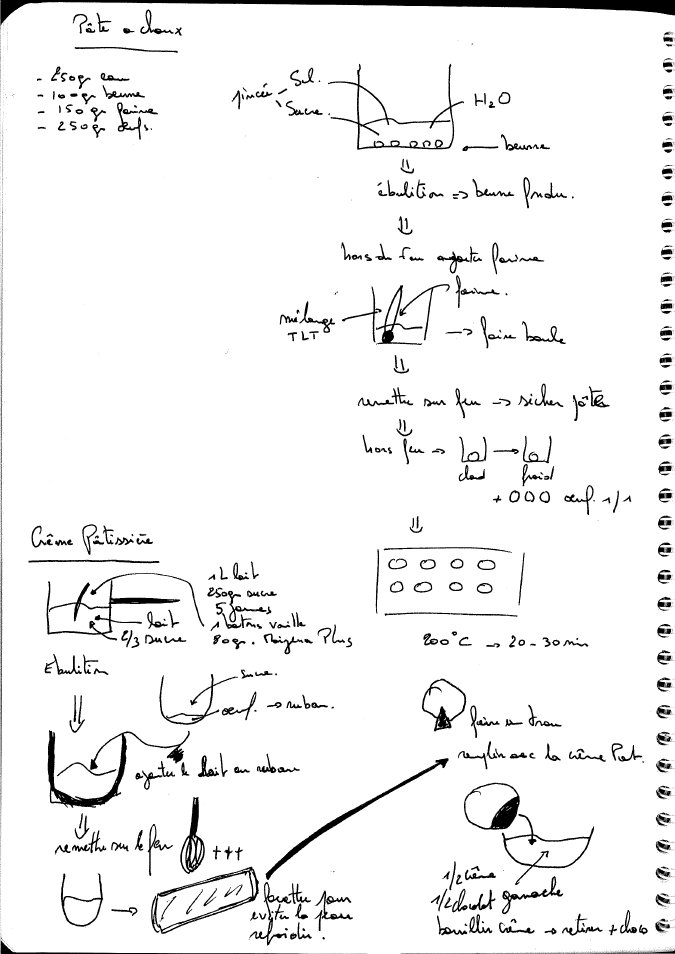 Pâte a choux
- 250gr eau
- 100gr beurre
- 150gr farine
- 250gr œufs.
pincée
Sel.
Sucre.
H2O
beurre
ébulition => beurre fondu.
hors du feu ajouter farine
farine.
mélange
TLT
→ faire boule
remettre sur feu → sécher pâte
hors feu → chaud → froid
+ OOO œuf. 1/1
200°C → 20-30 min
faire un trou
remplir avec la crème Pat.
1/2 crème
1/2 chocolat ganache
bouillir crème → retirer + choco
Crème Pâtissière
1L lait
250gr sucre
5 jaunes
1 batons vanille
80gr. Maïzena Plus
lait
2/3 sucre
Ebulition
sucre.
œuf. → ruban.
ajouter le lait au ruban
remettre sur le feu
+++
pour
éviter la peau
refroidir.